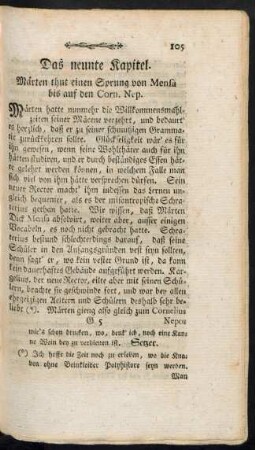 105
Das neunte Kapitel.
Märten thut einen Sprung von Mensa
bis auf den Corn. Nep.
Märten hatte nunmehr die Willkommensmahl-
zeiten seiner Mäcene verzehrt, und bedaurt'
es herzlich, daß er zu seiner schmutzigen Gramma-
tik zurückkehren sollte. Glückseligkeit wär' es für
ihn gewesen, wenn seine Wohlthäter auch für ihn
hätten studiren, und er durch beständiges Essen hät-
te gelehrt werden können, in welchem Falle man
sich viel von ihm hätte versprechen dürfen. Sein
neuer Rector macht' ihm indessen das Lernen un-
gleich bequemer, als es der misantropische Schra-
terius gethan hatte. Wir wissen, daß Märten
Dick Mensa absolvirt, weiter aber, ausser einigen
Vocabeln, es noch nicht gebracht hatte. Schra-
terius bestund schlechterdings darauf, daß seine
Schülern in den Anfangsgründen fest seyn sollten,
denn sagt' er, wo kein vester Grund ist, da kann
kein dauerhaftes Gebäude aufgeführt werden. Kar-
gelius, der neue Rector, eilte aber mit seinen Schü-
lern, brachte sie geschwinde fort, und war bey allen
ehrgeizigen Aeltern und Schülern deshalb sehr be-
liebt (*). Märten gieng also gleich zum Cornelius
G 5 Nepos
mir's schon drucken, wo, denk' ich, noch eine Kan-
ne Wein bey zu verdienen ist. Setzer.
(*) Ich hoffe die Zeit noch zu erleben, wo die Kna-
ben ohne Beinkleider Polyhistors seyn werden.
Man